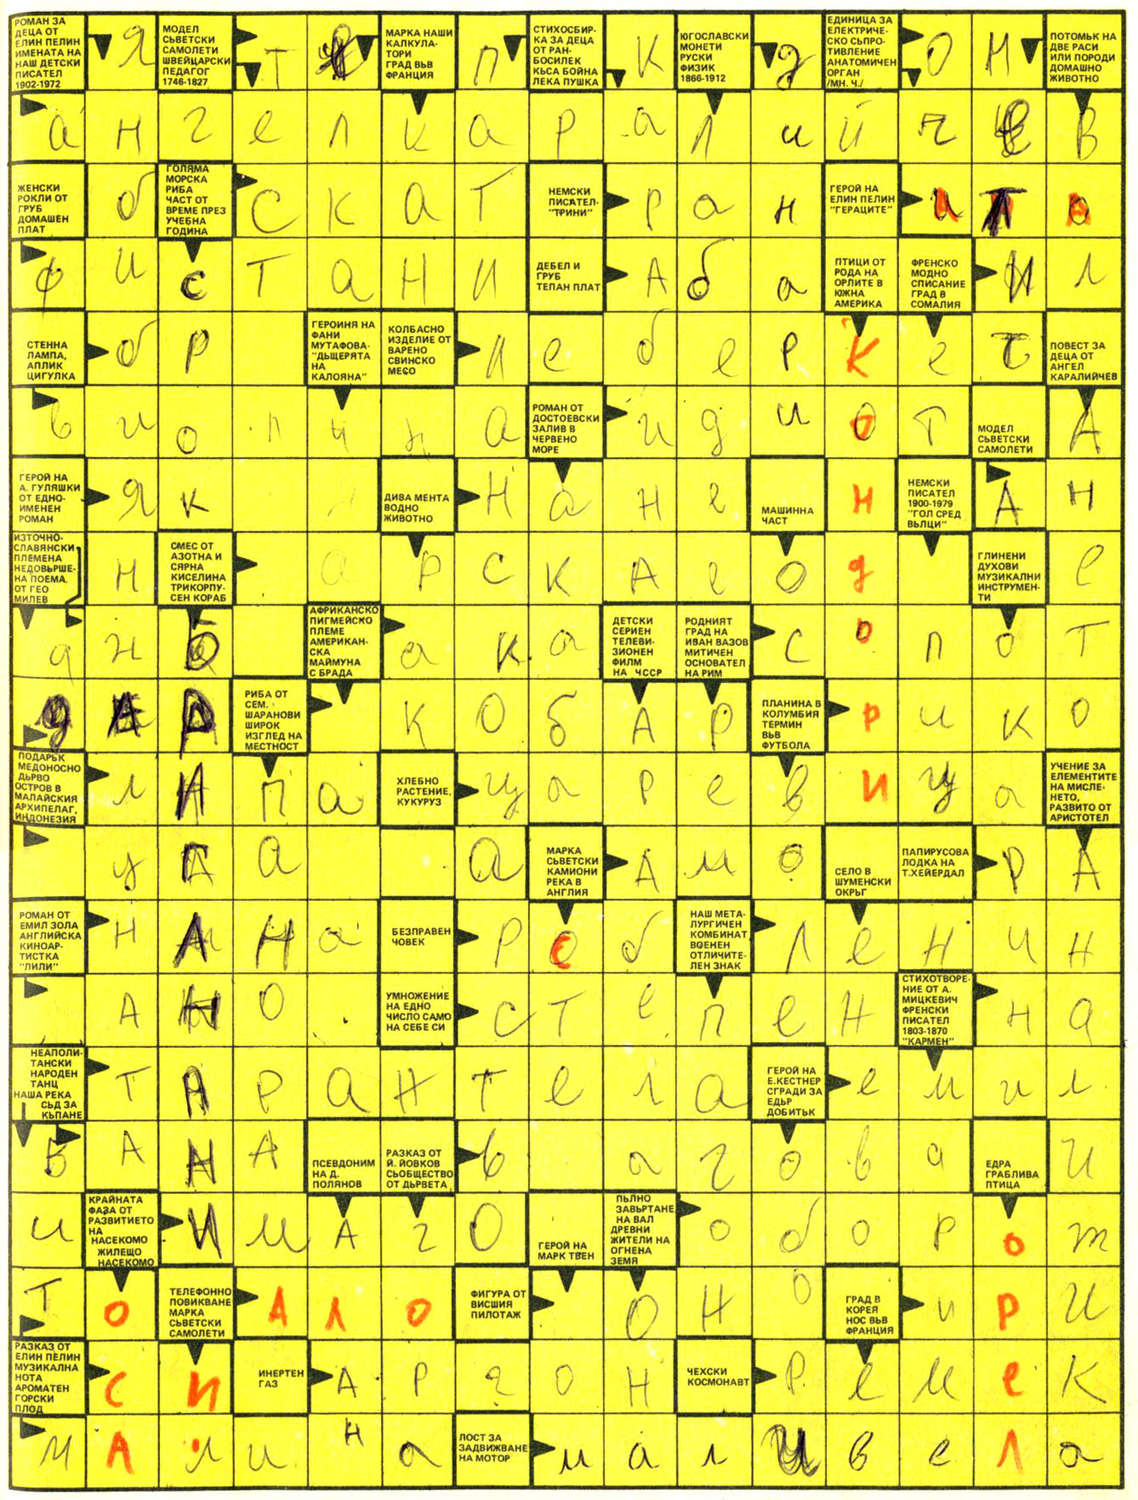 РОМАН ЗА
ДЕЦА ОТ
ЕЛИН ПЕЛИН
ИМЕНАТА НА
НАШ ДЕТСКИ
ПИСАТЕЛ
1902-1972
Я
МОДЕЛ
СЪВЕТСКИ
САМОЛЕТИ
ШВЕЙЦАРСКИ
ПЕДАГОГ
1746-1827
Т
МАРКА НАШИ
КАЛКУЛА-
ТОРИ
ГРАД ВЪВ
ФРАНЦИЯ
П
СТИХОСБИР-
КА ЗА ДЕЦА
ОТ РАН-
БОСИЛЕК
КЪСА БОЙНА
ЛЕКА ПУШКА
К
ЮГОСЛАВСКИ
МОНЕТИ
РУСКИ
ФИЗИК
1866-1912
д
ЕДИНИЦА ЗА
ЕЛЕКТРИЧЕ-
СКО СЪПРО-
ТИВЛЕНИЕ
АНАТОМИЧЕН
ОРГАН
/МН. Ч./
О М
ПОТОМЪК НА
ДВЕ РАСИ
ИЛИ ПОРОДИ
ДОМАШНО
ЖИВОТНО
а н г е л к а р а л и й ч е в
ЖЕНСКИ
РОКЛИ ОТ
ГРУБ
ДОМАШЕН
ПЛАТ
б
ГОЛЯМА
МОРСКА
РИБА
ЧАСТ ОТ
ВРЕМЕ ПРЕЗ
УЧЕБНА
ГОДИНА
С К А Т
НЕМСКИ
ПИСАТЕЛ-
"ТРИНИ"
Р а н
ГЕРОЙ НА
ЕЛИН ПЕЛИН
"ГЕРАЦИТЕ"
ф и с т а н и
ДЕБЕЛ И
ГРУБ
ТЕПАН ПЛАТ
А б а
ПТИЦИ ОТ
РОДА НА
ОРЛИТЕ В
ЮЖНА
АМЕРИКА
ФРЕНСКО
МОДНО
СПИСАНИЕ
ГРАД В
СОМАЛИЯ
л
СТЕННА
ЛАМПА,
АПЛИК
ЦИГУЛКА
б р
ГЕРОИНЯ НА
ФАНИ
МУТАФОВА-
"ДЪЩЕРЯТА
НА
КАЛОЯНА"
КОЛБАСНО
ИЗДЕЛИЕ ОТ
ВАРЕНО
СВИНСКО
МЕСО
л е б е р К е т
ПОВЕСТ ЗА
ДЕЦА ОТ
АНГЕЛ
КАРАЛИЙЧЕВ
в и о л и н а
РОМАН ОТ
ДОСТОЕВСКИ
ЗАЛИВ В
ЧЕРВЕНО
МОРЕ
и д и О Т
МОДЕЛ
СЪВЕТСКИ
САМОЛЕТИ
А
ГЕРОЙ НА
А. ГУЛЯШКИ
ОТ ЕДНО-
ИМЕНЕН
РОМАН
Я к
ДИВА МЕНТА
ВОДНО
ЖИВОТНО
Н а н е
МАШИННА
ЧАСТ
Н
НЕМСКИ
ПИСАТЕЛ
1900-1979
"ГОЛ СРЕД
ВЪЛЦИ"
А н
ИЗТОЧНО-
СЛАВЯНСКИ
ПЛЕМЕНА
НЕДОВЪРШЕ-
НА ПОЕМА
ОТ ГЕО
МИЛЕВ
н
СМЕС ОТ
АЗОТНА И
СЯРНА
КИСЕЛИНА
ТРИКОРПУ-
СЕН КОРАБ
а р с к а е о д
ГЛИНЕНИ
ДУХОВИ
МУЗИКАЛНИ
ИНСТРУМЕН-
ТИ
е
Б
АФРИКАНСКО
ПИГМЕЙСКО
ПЛЕМЕ
АМЕРИКАН-
СКА
МАЙМУНА
С БРАДА
а к а
ДЕТСКИ
СЕРИЕН
ТЕЛЕВИ-
ЗИОНЕН
ФИЛМ
НА ЧССР
РОДНИЯТ
ГРАД НА
ИВАН ВАЗОВ
МИТИЧЕН
ОСНОВАТЕЛ
НА РИМ
С о п о т
д А Р
РИБА ОТ
СЕМ.
ШАРАНОВИ
ШИРОК
ИЗГЛЕД НА
МЕСТНОСТ
К О б А р
ПЛАНИНА В
КОЛУМБИЯ
ТЕРМИН
ВЪВ
ФУТБОЛА
Р и к о
ПОДАРЪК
МЕДОНОСНО
ДЪРВО
ОСТРОВ В
МАЛАЙСКИЯ
АРХИПЕЛАГ,
ИНДОНЕЗИЯ
л и п а
ХЛЕБНО
РАСТЕНИЕ,
КУКУРУЗ
ц а р е в И ц а
УЧЕНИЕ ЗА
ЕЛЕМЕНТИТЕ
НА МИСЛЕ-
НЕТО,
РАЗВИТО ОТ
АРИСТОТЕЛ
а а
МАРКА
СЪВЕТСКИ
КАМИОНИ
РЕКА В
АНГЛИЯ
А м о
СЕЛО В
ШУМЕНСКИ
ОКРЪГ
ПАПИРУСОВА
ЛОДКА НА
Т.ХЕЙЕРДАЛ
Р А
РОМАН ОТ
ЕМИЛ ЗОЛА
АНГЛИЙСКА
КИНОАР-
ТИСТКА
"ЛИЛИ"
Н А Н а
БЕЗПРАВЕН
ЧОВЕК
Р О б
НАШ МЕТА-
ЛУРГИЧЕН
КОМБИНАТ
ВОЕНЕН
ОТЛИЧИТЕ-
ЛЕН ЗНАК
Л е н и н
А Н О
УМНОЖЕНИЕ
НА ЕДНО
ЧИСЛО САМО
НА СЕБЕ СИ
С Т е п е н
СТИХОТВОРЕ-
НИЕ ОТ А.
МИЦКЕВИЧ
ФРЕНСКИ
ПИСАТЕЛ
1803-1870
"КАРМЕН"
н а
НЕАПОЛИ-
ТАНСКИ
НАРОДЕН
ТАНЦ
НАША РЕКА
СЪД ЗА
КЪПАНЕ
Т А р а н т е л а
ГЕРОЙ НА
Е.КЕСТНЕР
СГРАДИ ЗА
ЕДЪР
ДОБИТЪК
е м и л
В А Н А
ПСЕВДОНИМ
НА Д.
ПОЛЯНОВ
РАЗКАЗ ОТ
Й. ЙОВКОВ
СЪОБЩЕСТВО
ОТ ДЪРВЕТА
в а г о в а
ЕДРА
ГРАБЛИВА
ПТИЦА
и
и
КРАЙНАТА
ФАЗА ОТ
РАЗВИТИЕТО
НА
НАСЕКОМО
ЖИЛЕЩО
НАСЕКОМО
И м А г О
ГЕРОЙ НА
МАРК ТВЕН
ПЪЛНО
ЗАВЪРТАНЕ
НА ВАЛ
ДРЕВНИ
ЖИТЕЛИ НА
ОГНЕНА
ЗЕМЯ
о б о р о т
Т О
ТЕЛЕФОННО
ПОВИКВАНЕ
МАРКА
СЪВЕТСКИ
САМОЛЕТИ
А Л О
ФИГУРА ОТ
ВИСШИЯ
ПИЛОТАЖ
О Н О
ГРАД В
КОРЕЯ
НОС ВЪВ
ФРАНЦИЯ
и Р и
РАЗКАЗ ОТ
ЕЛИН ПЕЛИН
МУЗИКАЛНА
НОТА
АРОМАТЕН
ГОРСКИ
ПЛОД
С И
ИНЕРТЕН
ГАЗ
А Р г о н
ЧЕХСКИ
КОСМОНАВТ
Р е м е К
м А л и н а
ЛОСТ ЗА
ЗАДВИЖВАНЕ
НА МОТОР
м а л и в е Л а